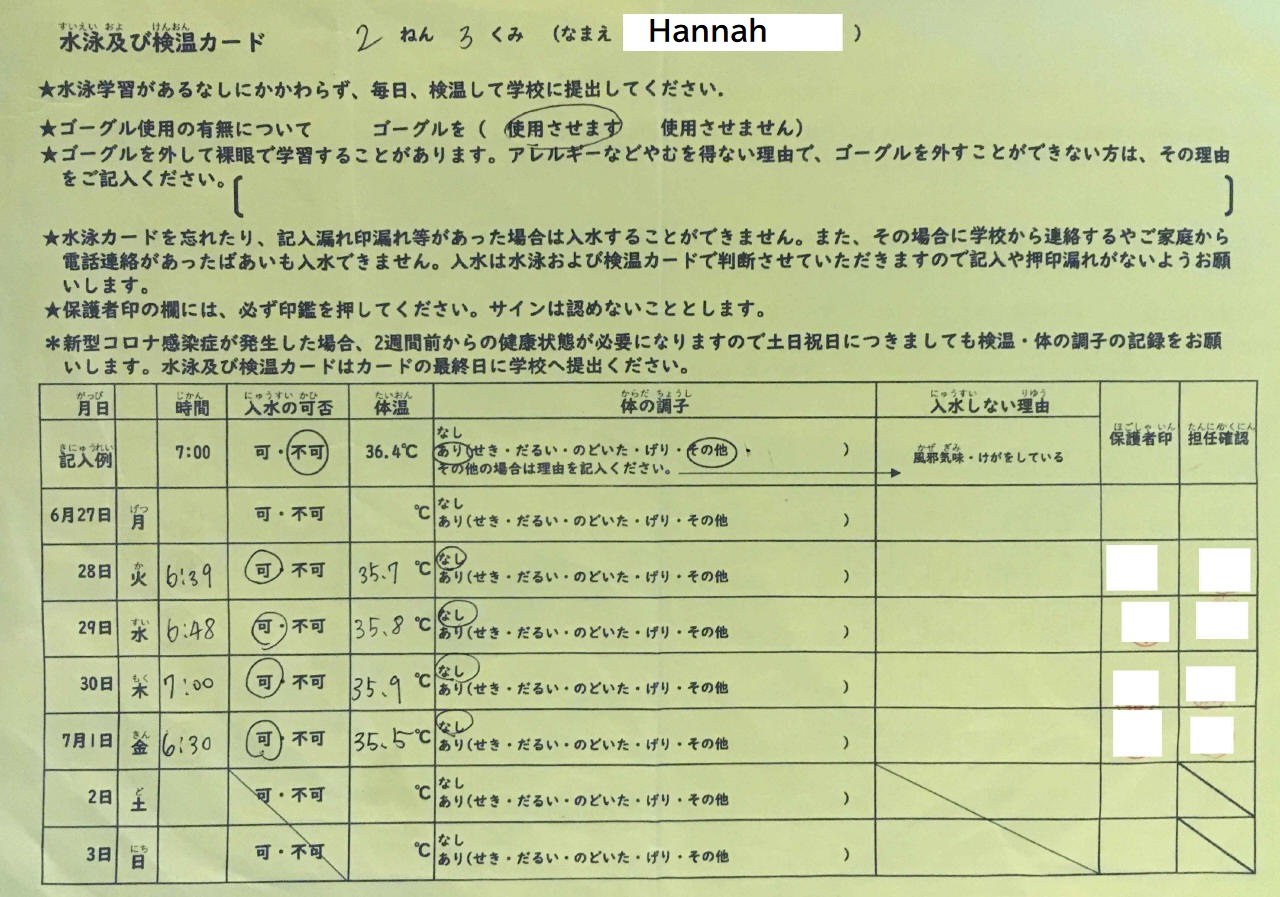 すいえい およ けんおん
水泳及び検温カード 2 ねん 3 くみ (なまえ Hannah )
★水泳学習があるなしにかかわらず、毎日、検温して学校に提出してください.
★ゴーグル使用の有無について ゴーグルを ( 使用させます 使用させません)
★ゴーグルを外して裸眼で学習することがあります。アレルギーなどやむを得ない理由で、ゴーグルを外すことができない方は、その理由
をご記入ください。[ ]
★水泳カードを忘れたり、記入漏れ印漏れ等があった場合は入水することができません。また、その場合に学校から連絡するやご家庭から
電話連絡があったばあいも入水できません。入水は水泳および検温カードで判断させていただきますので記入や押印漏れがないようお願
いします。
★保護者印の欄には、必ず印鑑を押してください。サインは認めないこととします。
*新型コロナ感染症が発生した場合、2週間前からの健康状態が必要になりますので土日祝日につきましても検温・体の調子の記録をお願
いします。水泳及び検温カードはカードの最終日に学校へ提出ください。
がっぴ じかん にゅうすい かひ たいおん からだ ちょうし にゅうすい りゆう
月日 時間 入水の可否 体温 体の調子 入水しない理由
ほごしゃ いん たんにんかくにん
保護者印 担任確認
きにゅうれい
記入例 7:00 可・不可 36.4℃ なし
あり(せき・だるい・のどいた・げり・その他 )
その他の場合は理由を記入ください。
かぜ ぎみ
風邪気味・けがをしている
6月27日 げつ 月 可・不可 ℃ なし
あり(せき・だるい・のどいた・げり・その他 )
28日 か 火 6:39 可・不可 35.7 ℃ なし
あり(せき・だるい・のどいた・げり・その他 )
29日 すい 水 6:48 可・不可 35.8 ℃ なし
あり(せき・だるい・のどいた・げり・その他 )
30日 もく 木 7:00 可・不可 35.9 ℃ なし
あり(せき・だるい・のどいた・げり・その他 )
7月1日 きん 金 6:30 可・不可 35.5 ℃ なし
あり(せき・だるい・のどいた・げり・その他 )
2日 ど 土 可・不可 ℃ なし
あり(せき・だるい・のどいた・げり・その他 )
3日 にち 日 可・不可 ℃ なし
あり(せき・だるい・のどいた・げり・その他 )